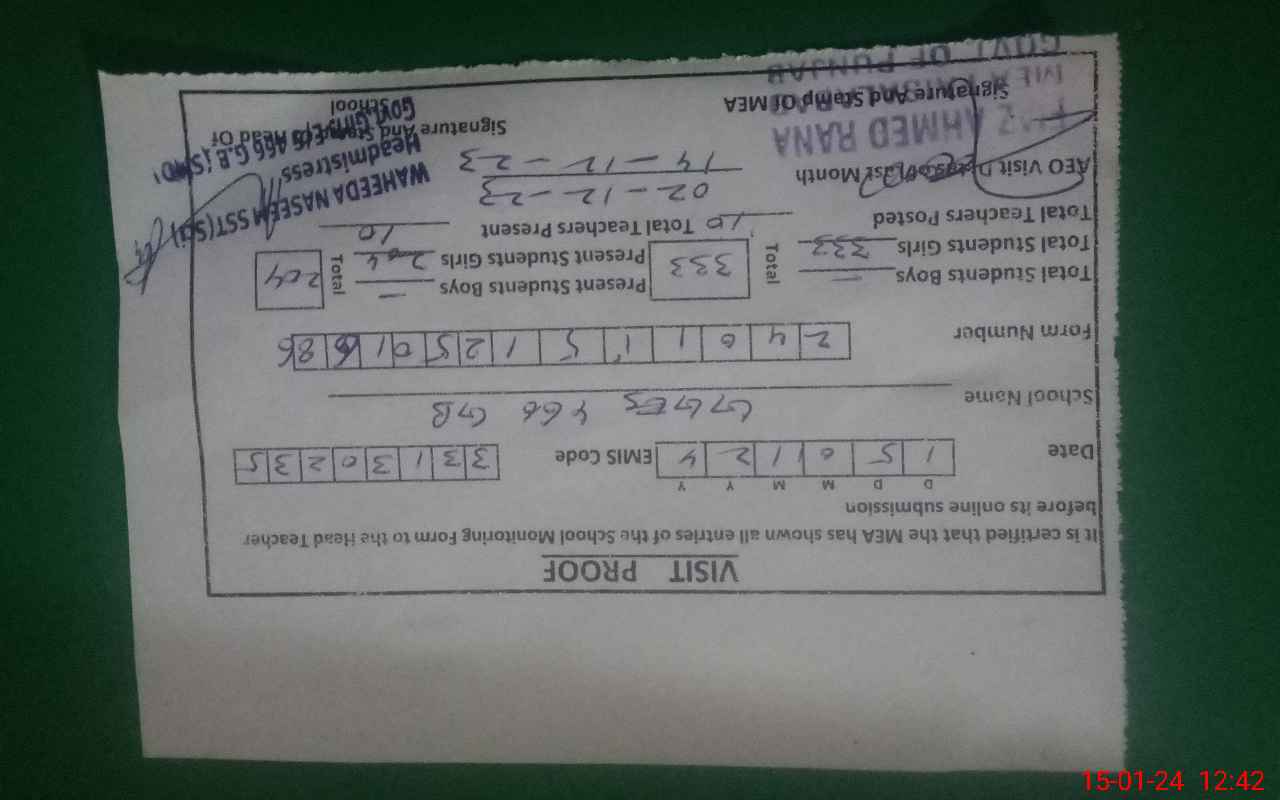 VISIT PROOF
It is certified that the MEA has shown all entries of the School Monitoring Form to the Head Teacher
before its online submission
D D M M Y Y
Date 1 5 0 1 2 4 EMIS Code 3 3 1 3 0 2 3 5
School Name GGES 466 GB
Form Number 2 4 0 1 1 5 1 2 5 0 1 6 8 6
Total Students Boys — Total 333 Present Students Boys — Total 204
Total Students Girls 333 Present Students Girls 204
Total Teachers Posted 10 Total Teachers Present 10
AEO Visit Dates of Last Month 02-12-23
14-12-23
WAHEEDA NASEEM SST(Sci)
Headmistress
Govt. Girls E/S 466 G.B
AHMED RANA
Signature And Stamp Of MEA
Signature And Stamp Of Head Of
School
GOVT. OF PUNJAB
15-01-24 12:42